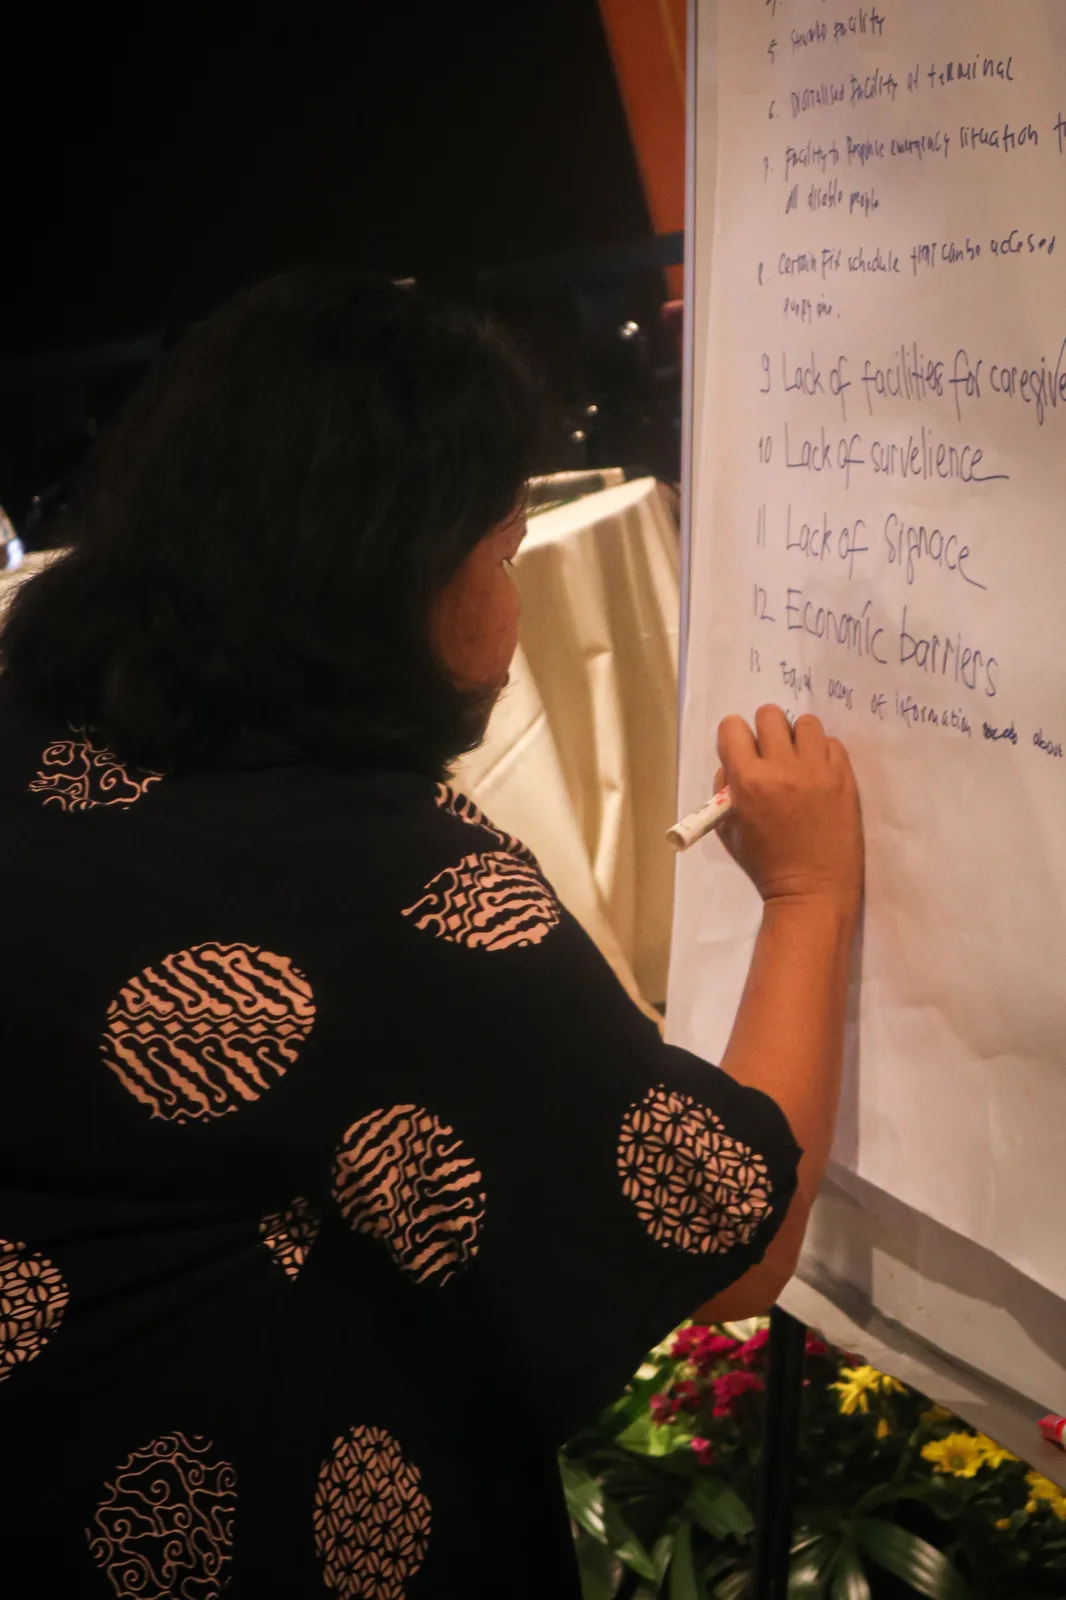 5. Facility
6. Digitalised Facility at terminal
7. Facility to Response emergency situation
all disable people
8. Certain Fix schedule that can be accesed
every one.
9 Lack of facilities for caregive
10 Lack of survelience
11 Lack of Signace
12 Economic barriers
13 Equal acces of information about